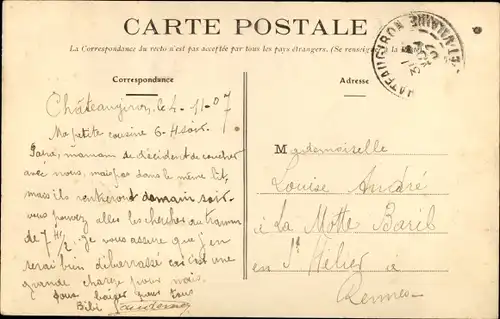 CARTE POSTALE
La Correspondance du recto n'est pas acceptée par tous les pays étrangers. (Se renseigner à la
Correspondance
Adresse
Châteaugiron, le 4-11-07
Ma petite cousine 6 H soir.
maman se décident de coucher
avec nous, mais pas dans le même lit,
mais ils rentreront demain soir.
vous pouvez aller les chercher au tramm
de 7 H 1/2. je vous assure que j'en
serai bien débarrassé car c'est une
grande charge pour moi.
pour tous
Bibi
Mademoiselle
Louise André
à La Motte Baril
en St Hélier à
Rennes
CHATEAUGIRON